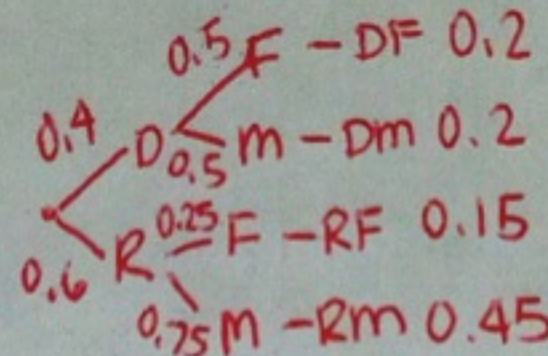 0.5 F - DF 0.2
0.4 D 0.5 m - Dm 0.2
0.6 R 0.25 F - RF 0.15
0.75 m - Rm 0.45